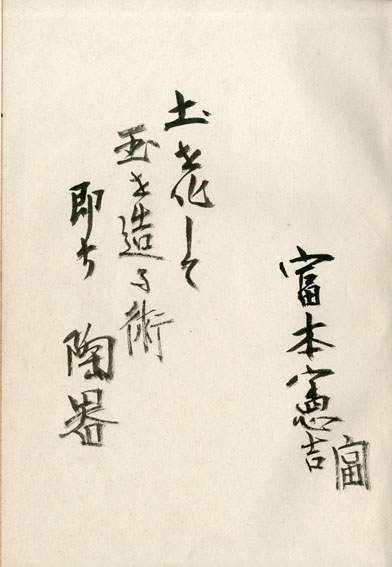 富本憲吉
富
土を化して
玉を造る術
即ち 陶器